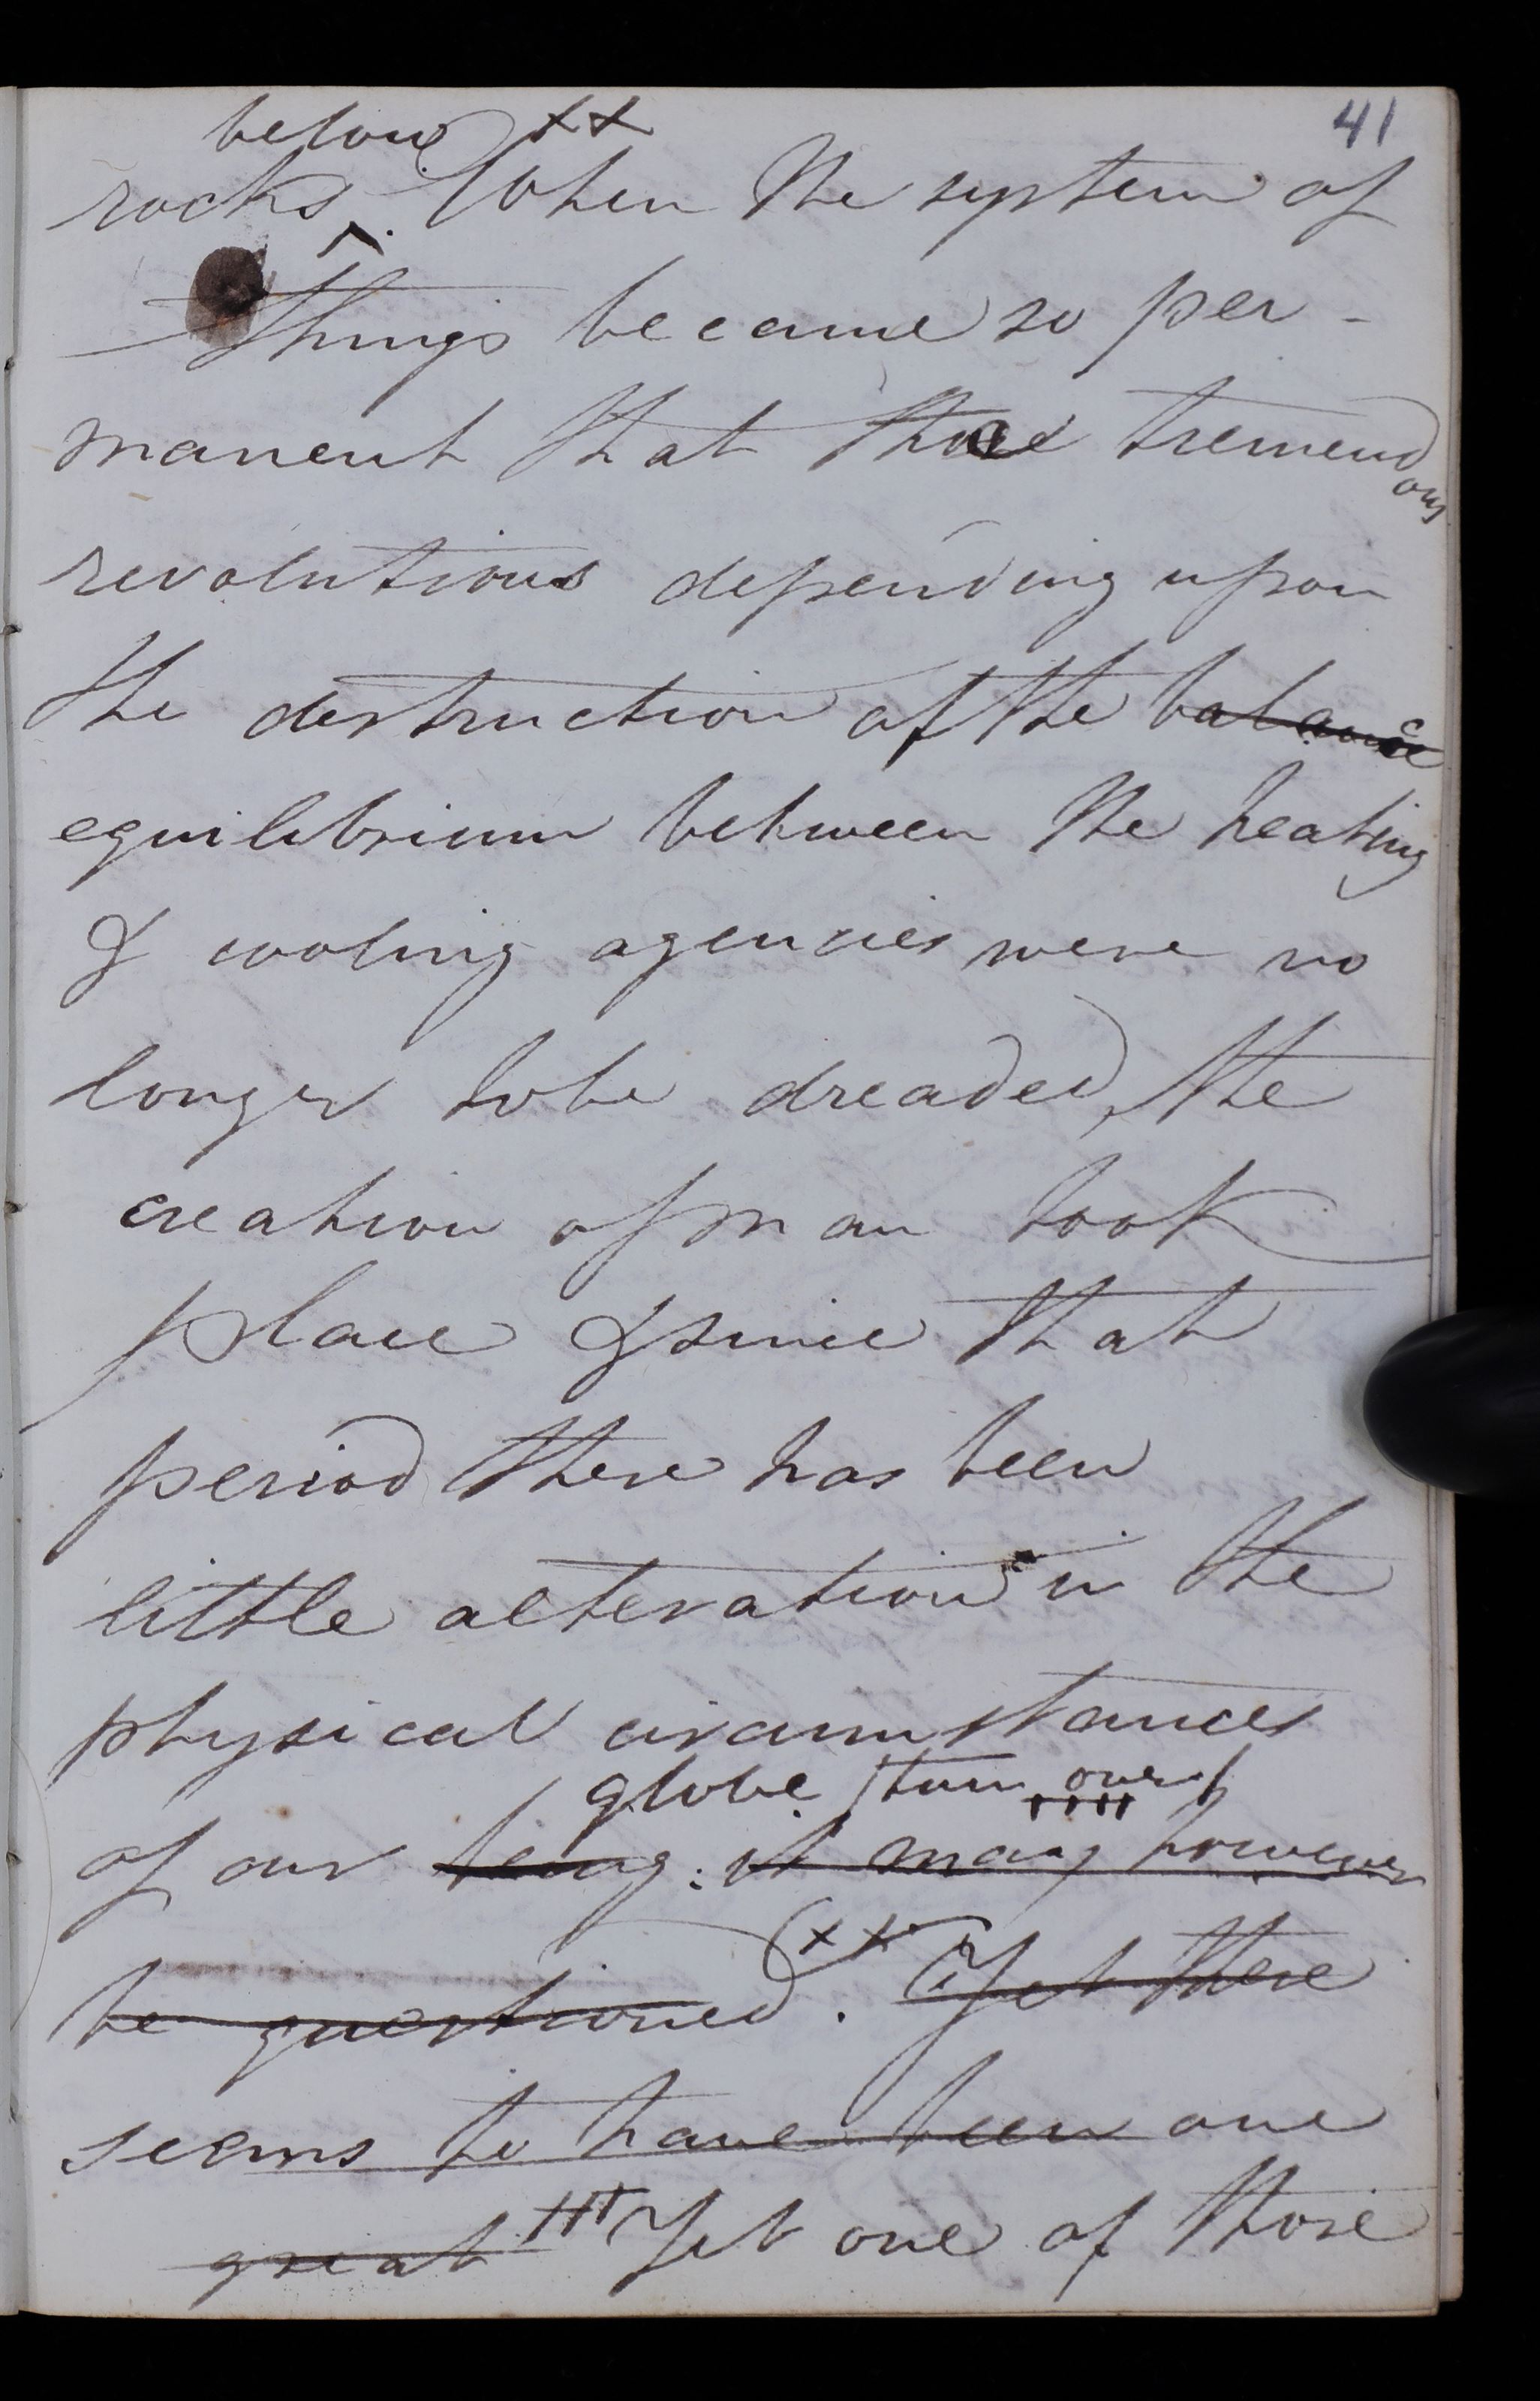 41
below ××
rocks ^. When the system of
things became so per-
manent that those tremendous
revolutions depending upon
the destruction of the balance
equilibrium between the heating
& cooling agencies were no
longer to be dreaded, the
creation of man took
place & since that
period there has been
little alteration in the
physical circumstances
globe turn over
of our being: it may however
be questioned. (×× Yet there
seems to have been one
great Yet one of those